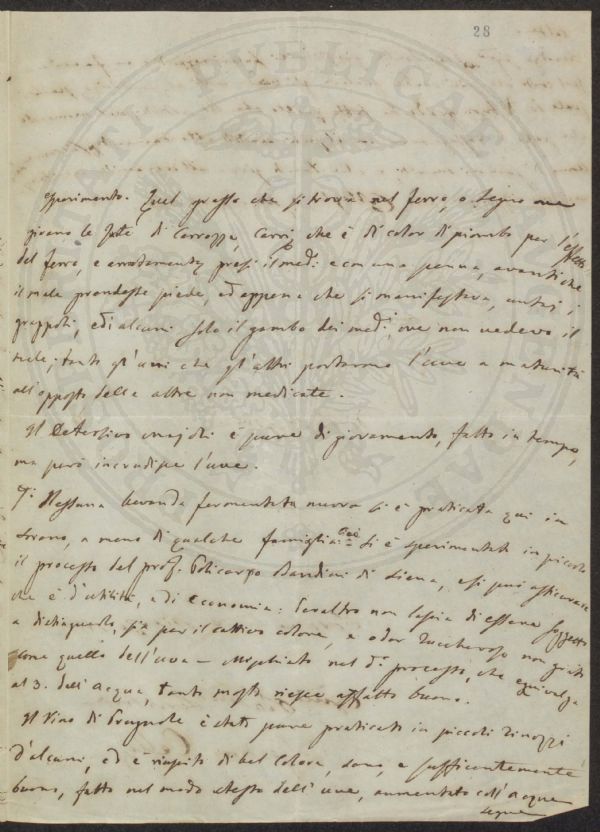 28
sperimento. Quel grasso che si trova nel ferro, o legno ove
girano le di Carrozza, Carri, che è di color di piombo per l'effetto
del ferro, e presi il med.° e con una penna, avanti che
il male prendesse piede, ed appena che si manifestava, untai i
grappoli, e di alcuni solo il gambo dei med.i, ove non vedevo il
male; tanto gl'uni che gl'altri portarono l'uve a maturità
all'opposto delle altre non medicate.
Il Detersivo è pure di giovamento, fatto in tempo,
ma però incrudisce l'uve.
7.° Nessuna bevanda fermentata nuova si è praticata qui in
a meno di qualche famiglia. Si è sperimentato in piccolo
il processo del prof. Policarpo Bandini di Siena, e si può assicurare
che è d'utilità, e di economia: Peraltro non lascia di essere soggetto
a distinguerlo, sia per il cattivo colore, e odor Zuccheroso non grato
come quello dell'uva — Mischiato nel d.° processo, che equivalga
al 3. dell'acqua, tanto mosto riesce affatto buono.
Il Vino di Prugnole è stato pure praticato in piccoli Tinozzi
d'alcuni, ed è riuscito di bel Colore, sano, e sufficientemente
buono, fatto nel modo stesso dell'uve, aumentato coll'acqua
segue